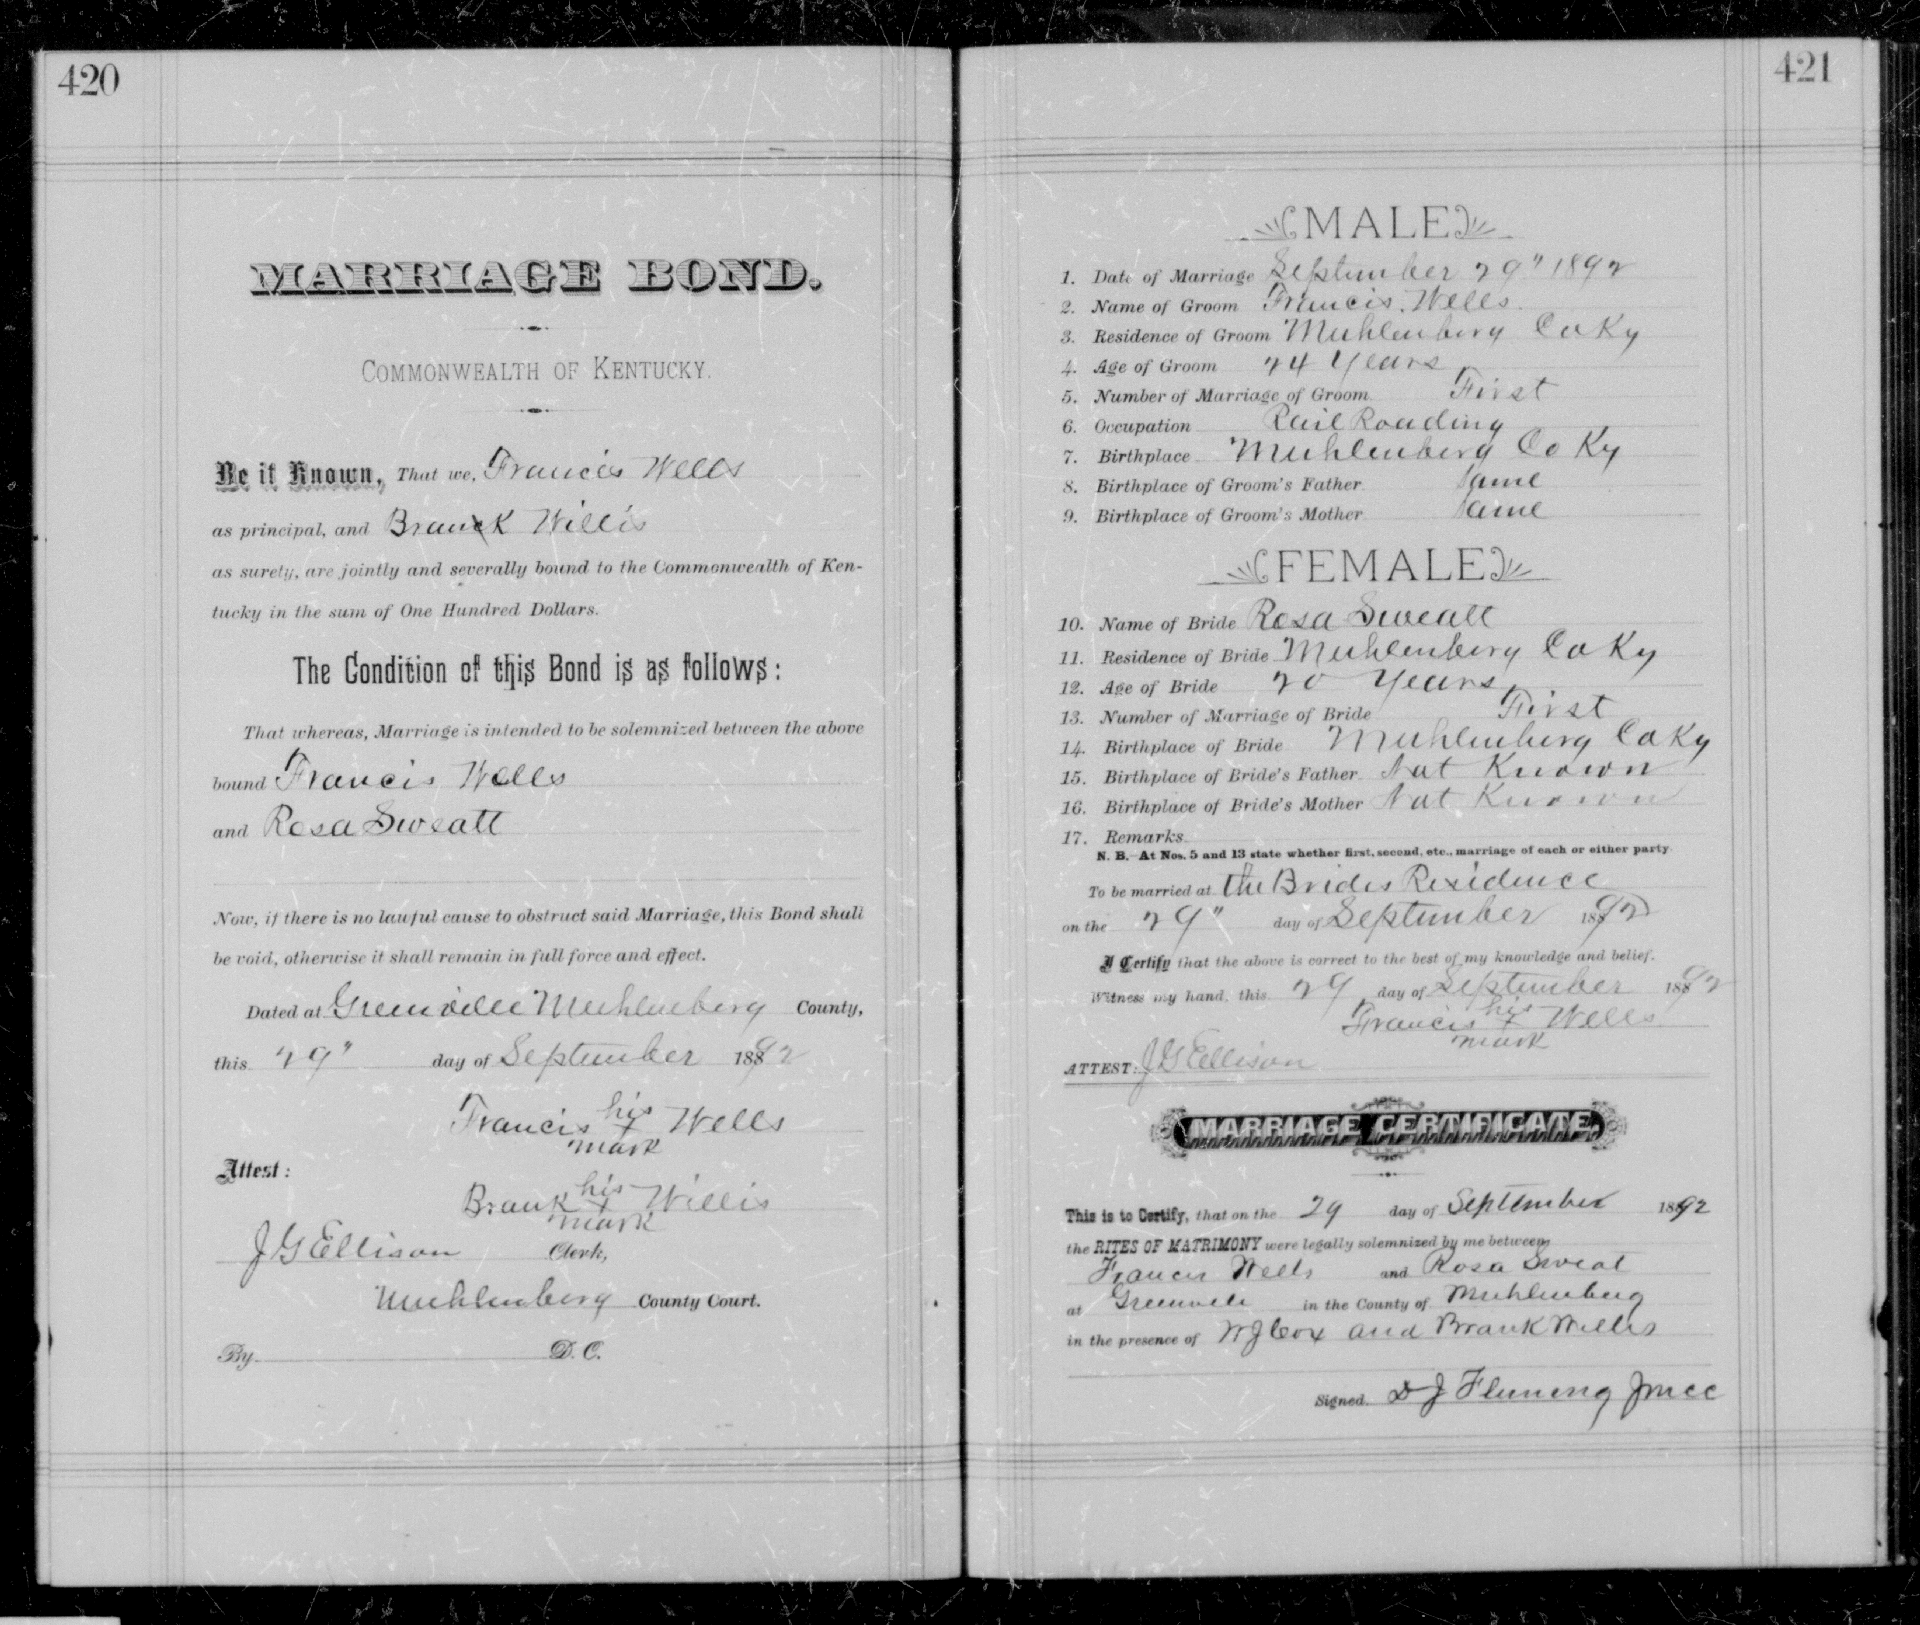 420
MARRIAGE BOND.
COMMONWEALTH OF KENTUCKY.
Be it Known, That we, Francis Wells
as principal, and Branck Willis
as surety, are jointly and severally bound to the Commonwealth of Ken-
tucky in the sum of One Hundred Dollars.
The Condition of this Bond is as follows:
That whereas, Marriage is intended to be solemnized between the above
bound Francis Wells
and Rosa Sweatt
Now, if there is no lawful cause to obstruct said Marriage, this Bond shall
be void, otherwise it shall remain in full force and effect.
Dated at Greenville Muhlenberg County,
this 29" day of September 1892
his
Francis x Wells
mark
Attest:
his
Brank x Willis
mark
J G Ellison Clerk,
Muhlenberg County Court.
By D. C.
421
MALE
1. Date of Marriage September 29" 1892
2. Name of Groom Francis. Wells.
3. Residence of Groom Muhlenberg Co Ky
4. Age of Groom 24 Years
5. Number of Marriage of Groom First
6. Occupation Rail Roading
7. Birthplace Muhlenberg Co Ky
8. Birthplace of Groom's Father Same
9. Birthplace of Groom's Mother Same
FEMALE
10. Name of Bride Rosa Sweatt
11. Residence of Bride Muhlenberg Co Ky
12. Age of Bride 20 Years
13. Number of Marriage of Bride First
14. Birthplace of Bride Muhlenberg Co Ky
15. Birthplace of Bride's Father Not Known
16. Birthplace of Bride's Mother Not Known
17. Remarks
N. B. At Nos. 5 and 13 state whether first, second, etc., marriage of each or either party
To be married at the Brides Residence
on the 29" day of September 1892
I Certify that the above is correct to the best of my knowledge and belief.
Witness my hand, this 29 day of September 1892
his
Francis x Wells
mark
ATTEST: J G Ellison
MARRIAGE CERTIFICATE.
This is to Certify, that on the 29 day of September 1892
the RITES OF MATRIMONY were legally solemnized by me between
Francis Wells and Rosa Sweat
at Greenville in the County of Muhlenberg
in the presence of W J Cox and Brank Willis
Signed. D J Fleming JMCC